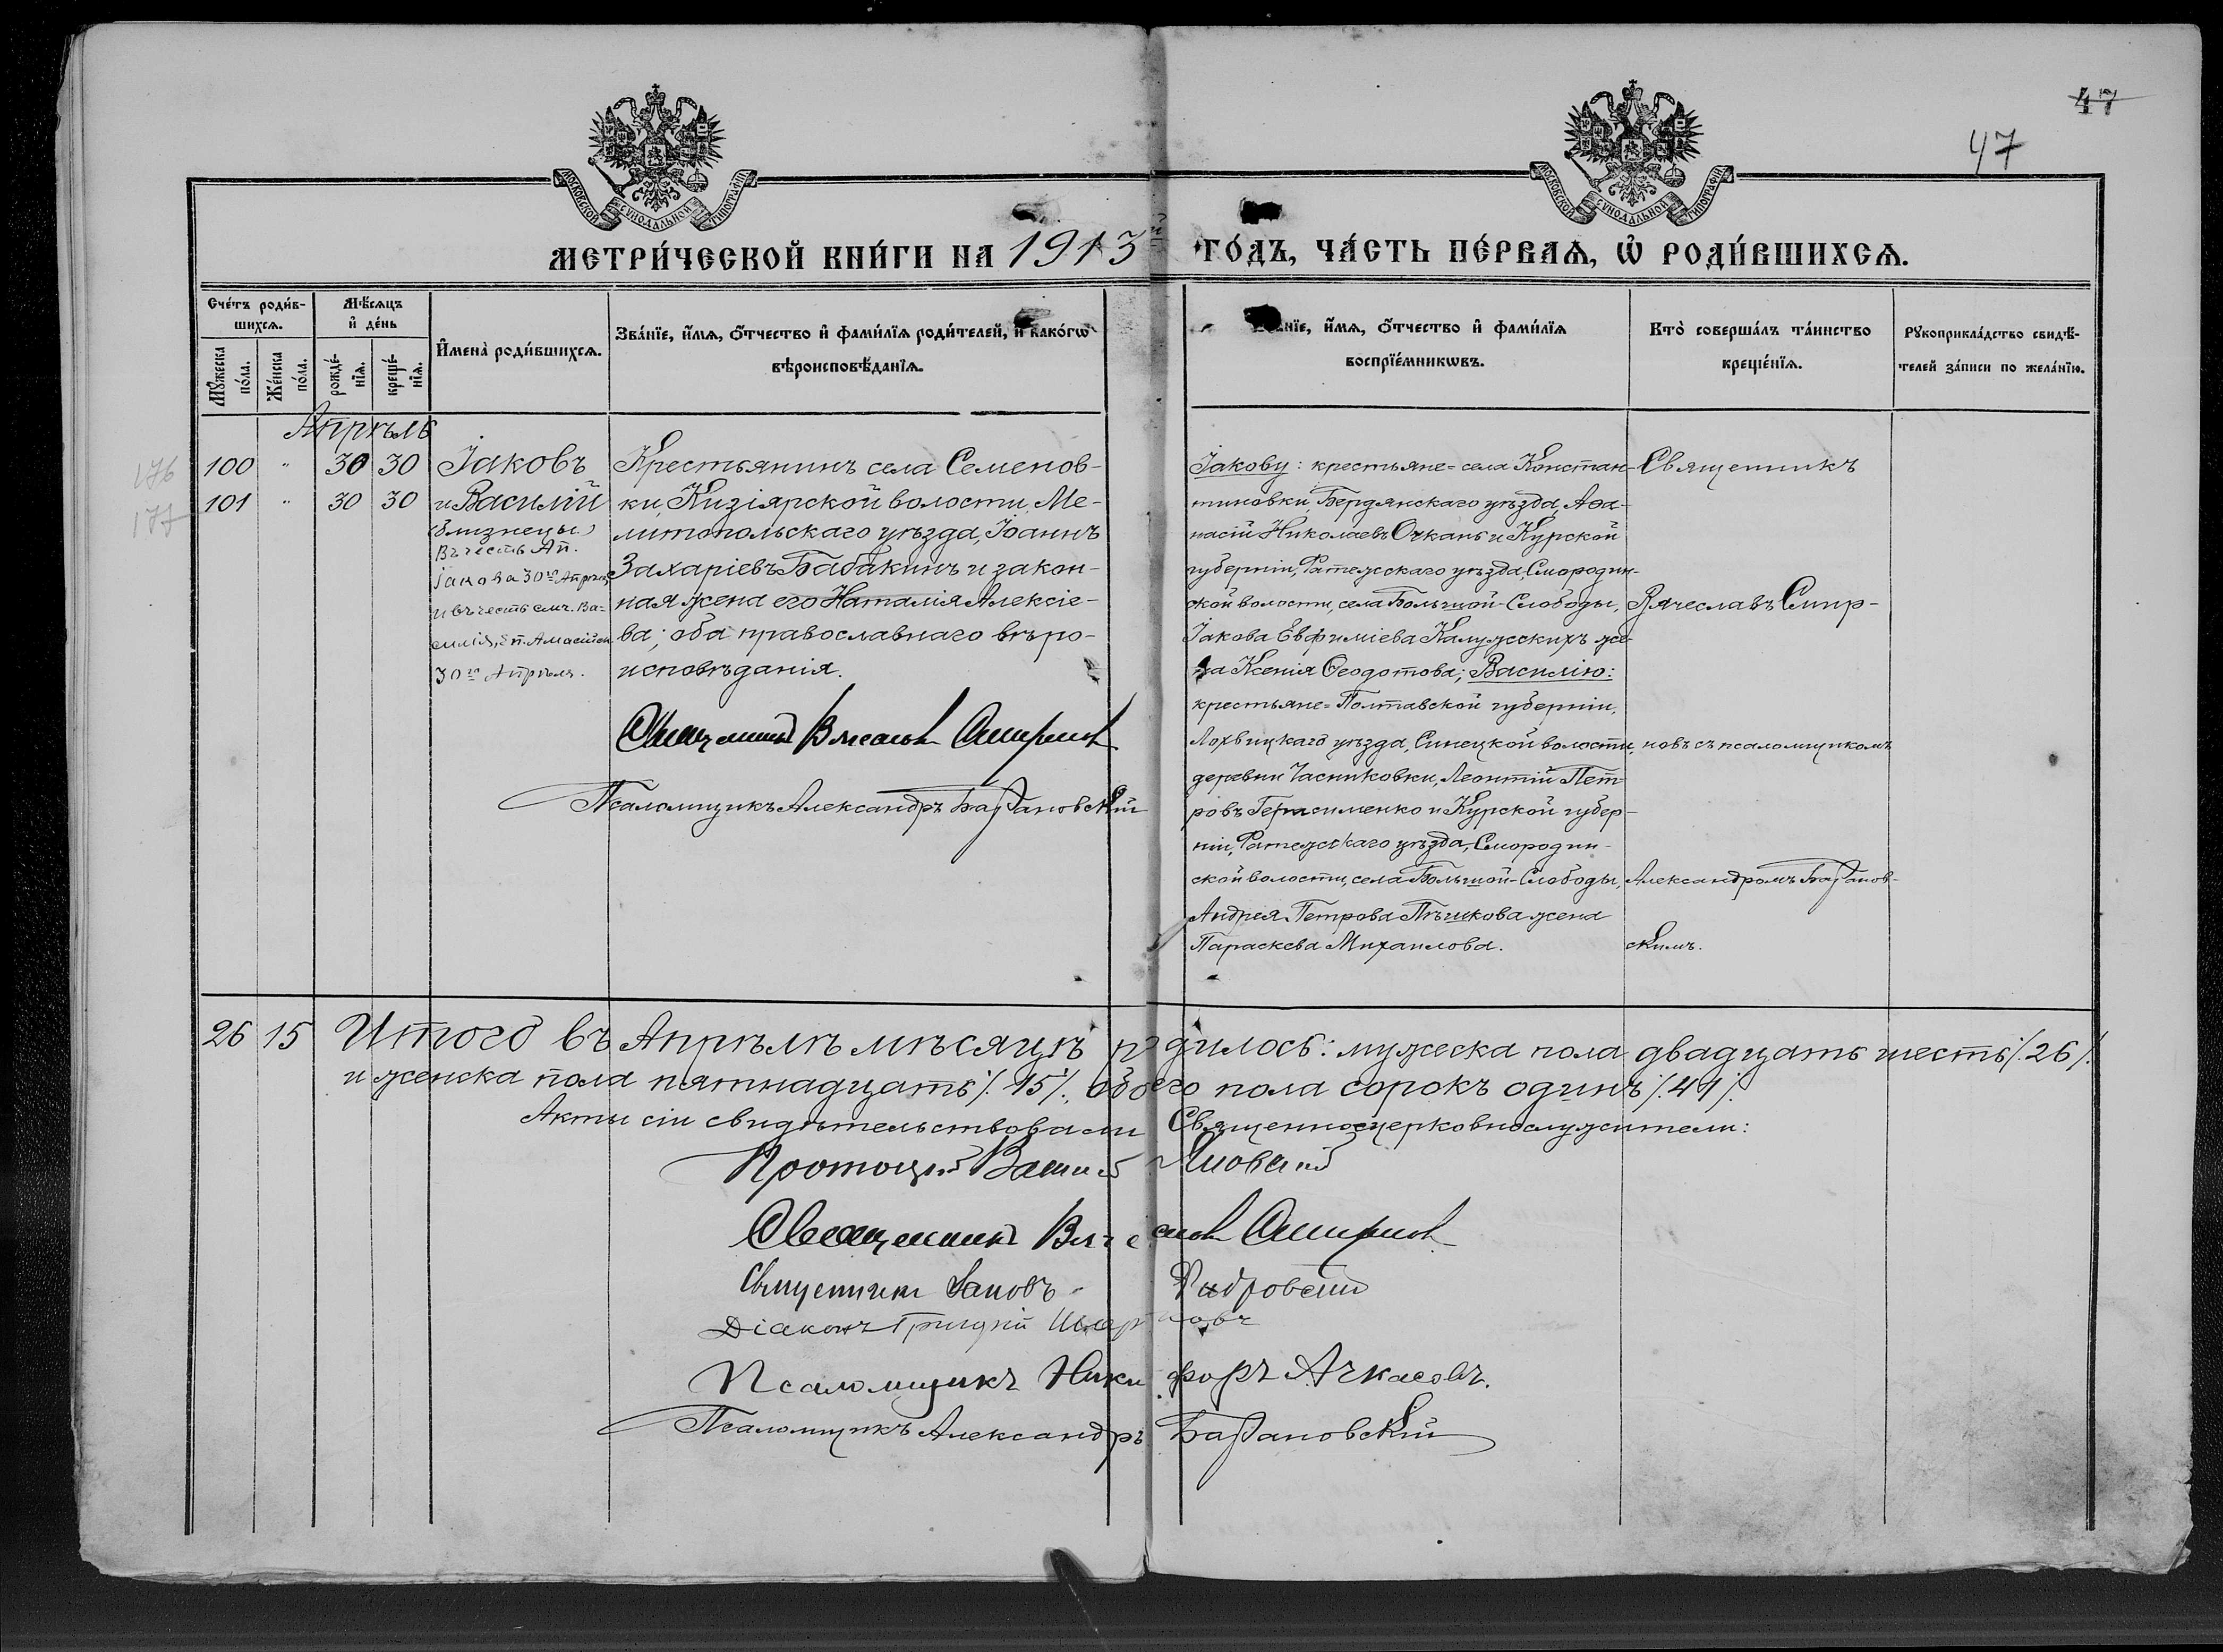 47
47
МОСКОВСКОЙ СУНОДАЛЬНОЙ ТИПОГРАФІИ
МОСКОВСКОЙ СУНОДАЛЬНОЙ ТИПОГРАФІИ
МЕТРИ́ЧЕСКОЙ КНИ́ГИ НА 1913й ГО́ДЪ, ЧА́СТЬ ПЕ́РВАѦ, Ѽ РОДИ́ВШИХСѦ.
Сче́тъ роди́в-
шихсѧ.
Мꙋжеска по́ла.
Же́нска по́ла.
Мѣ́сѧцъ
и҆ де́нь
рожде́-
нїѧ.
креще́-
нїѧ.
И҆мена̀ роди́вшихсѧ.
Зва́нїе, и҆́мѧ, ѻ҆́тчество и҆ фами́лїѧ роди́телей, и҆ како́гѡ
вѣроисповѣ́данїѧ.
Зва́нїе, и҆́мѧ, ѻ҆́тчество и҆ фами́лїѧ
воспрїе́мникѡвъ.
Кто̀ соверша́лъ та́инство
креще́нїѧ.
Рꙋкоприкла́дство свидѣ́-
телей за́писи по жела́нїю.
Апрѣль
176 100 " 30 30 Іаковъ
177 101 " 30 30 и Василій
(близнецы)
Въ честь Ап.
Іакова 30го Апрѣля
и въ честь смч. Ва-
силія, еп. Амасійск.
30го Апрѣля.
Крестьянинъ села Семенов-
ки, Кизіярской волости, Ме-
литопольскаго уѣзда, Іоаннъ
Захаріевъ Бабакинъ и закон-
ная жена его Наталія Алексіе-
ва; оба православнаго вѣро-
исповѣданія.
Священникъ Вячеславъ Смирновъ
Псаломщикъ Александръ Барановскій
Іакову: крестьяне = села Констан-
тиновки, Бердянскаго уѣзда, Аѳа-
насій Николаевъ Очкань и Курской
губерніи, Фатежскаго уѣзда, Смородин-
ской волости, села Большой-Слободы,
Іакова Евфиміева Калужскихъ же-
на Ксенія Ѳеодотова; Василію:
крестьяне = Полтавской губерніи,
Лохвицкаго уѣзда, Синецкой волости,
деревни Часниковки, Леонтій Пет-
ровъ Герасименко и Курской губер-
ніи, Фатежскаго уѣзда, Смородин-
ской волости, села Большой-Слободы,
Андрея Петрова Пѣшкова жена
Параскева Михаилова.
Священникъ
Вячеславъ Смир-
новъ съ псаломщикомъ
Александромъ Баранов-
скимъ.
26 15 Итого въ Апрѣлѣ мѣсяцѣ родилось: мужеска пола двадцать шесть /26/.
и женска пола пятнадцать /15/., обоего пола сорокъ одинъ /41/.
Акты сіи свидѣтельствовали Священноцерковнослужители:
Протоіерей Василій
Священникъ Вячеславъ Смирновъ
Священникъ Іаковъ
Діаконъ Григорій
Псаломщикъ Никифоръ Ачкасовъ.
Псаломщикъ Александръ Барановскій